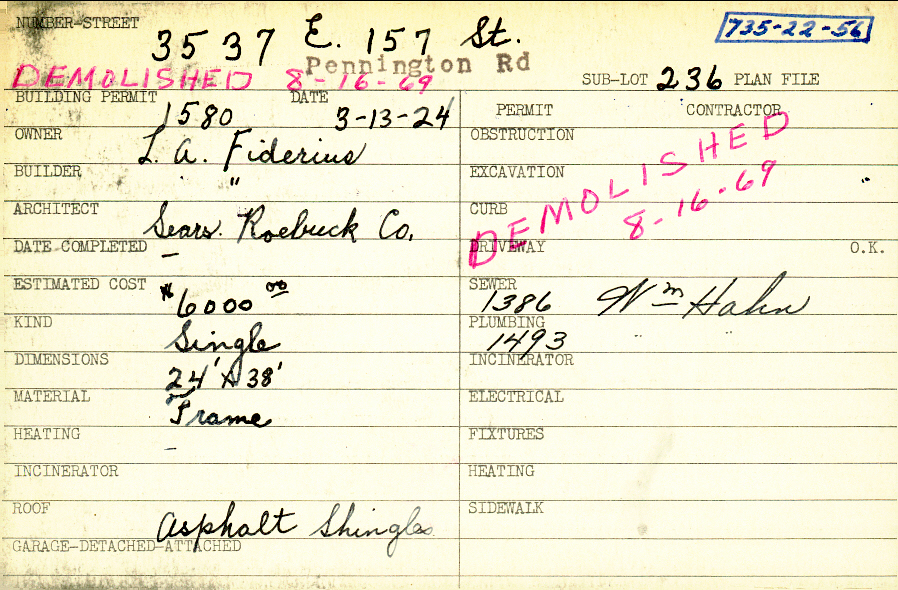 NUMBER-STREET 3537 E. 157 St. 735-22-56
Pennington Rd
DEMOLISHED 8-16-69 SUB-LOT 236 PLAN FILE
BUILDING PERMIT DATE PERMIT CONTRACTOR
1580 3-13-24
OWNER L. A. Fiderius
BUILDER "
ARCHITECT Sears. Roebuck Co.
DATE COMPLETED –
ESTIMATED COST $6000 00
KIND Single
DIMENSIONS 24' X 38'
MATERIAL Frame
HEATING –
INCINERATOR
ROOF Asphalt Shingles
GARAGE-DETACHED-ATTACHED
OBSTRUCTION
DEMOLISHED
8-16-69
EXCAVATION "
CURB
DRIVEWAY O.K.
SEWER 1386 Wm Hahn
PLUMBING 1493 " "
INCINERATOR
ELECTRICAL
FIXTURES
HEATING
SIDEWALK